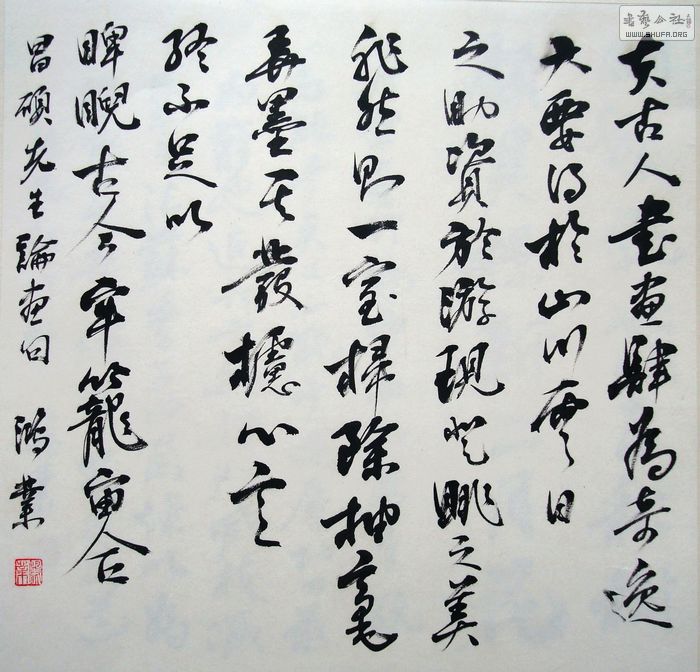 夫古人書畫肆為奇逸
大要得於山川雲日
之助資於游現登眺之美
非然則一室掃除抽毫
弄墨其發攄心意
終不足以
睥睨古今牢籠宙合
昌碩先生論畫句 鴻業
書藝公社
WWW.SHUFA.ORG